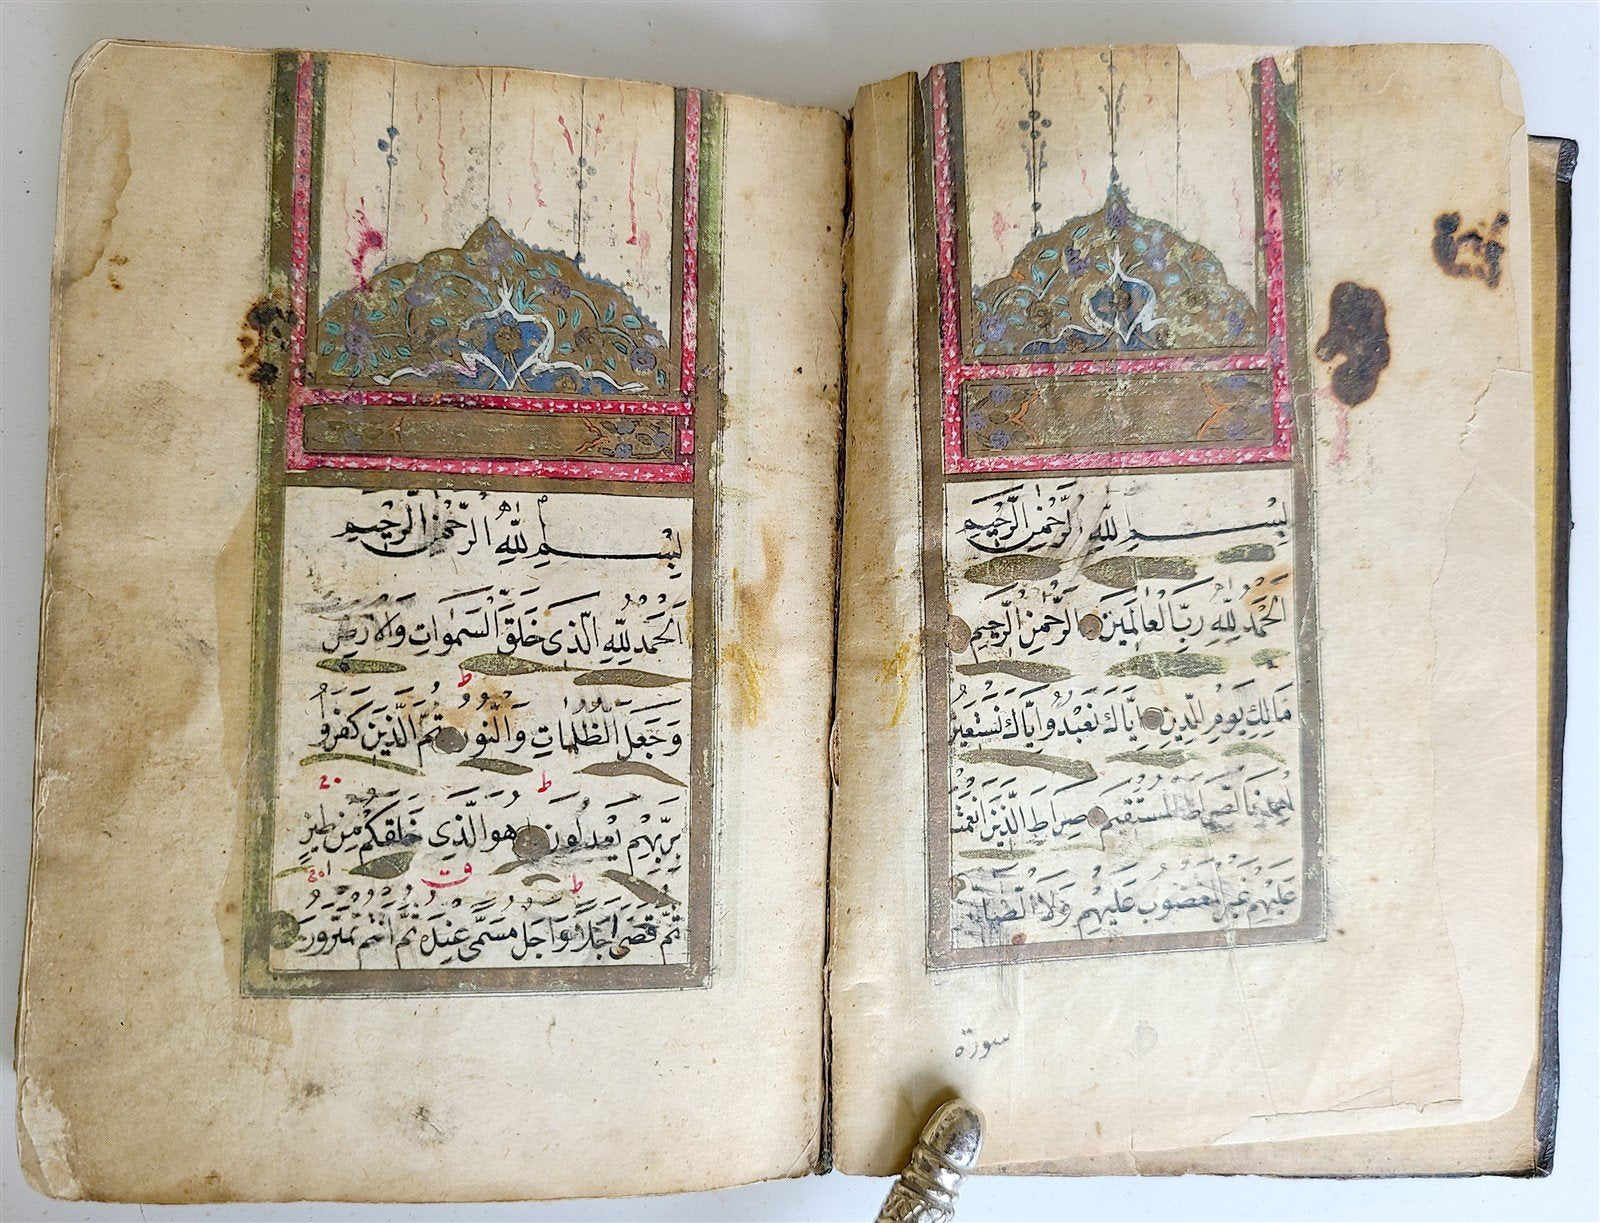 بِسْمِ اللّٰهِ الرَّحْمٰنِ الرَّحِيمِ
اَلْحَمْدُ لِلّٰهِ رَبِّ الْعَالَمِينَ الرَّحْمٰنِ الرَّحِيمِ
مَالِكِ يَوْمِ الدِّينِ اِيَّاكَ نَعْبُدُ وَاِيَّاكَ نَسْتَعِينُ
اِهْدِنَا الصِّرَاطَ الْمُسْتَقِيمَ صِرَاطَ الَّذِينَ اَنْعَمْتَ
عَلَيْهِمْ غَيْرِ الْمَغْضُوبِ عَلَيْهِمْ وَلَا الضَّالِّينَ
سورة
بِسْمِ اللّٰهِ الرَّحْمٰنِ الرَّحِيمِ
اَلْحَمْدُ لِلّٰهِ الَّذِى خَلَقَ السَّمٰوَاتِ وَالْاَرْضَ
وَجَعَلَ الظُّلُمَاتِ وَالنُّورَ ط ثُمَّ الَّذِينَ كَفَرُوا
بِرَبِّهِمْ يَعْدِلُونَ هُوَ الَّذِى خَلَقَكُمْ مِنْ طِينٍ
ثُمَّ قَضٰى اَجَلًا ط وَاَجَلٌ مُسَمًّى عِنْدَهُ ثُمَّ اَنْتُمْ تَمْتَرُونَ